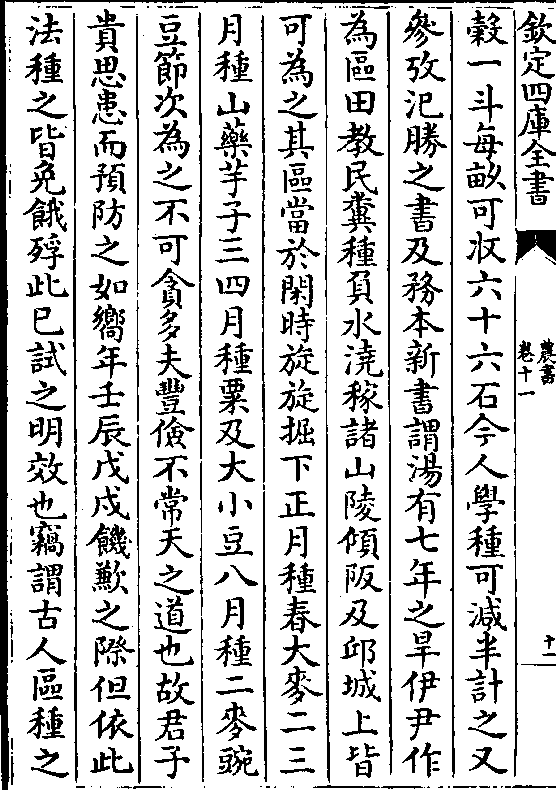 欽定四庫全書
農書
卷十一
十一
穀一斗每畝可收六十六石今人學種可減半計之又
參攷氾勝之書及務本新書謂湯有七年之旱伊尹作
為區田教民糞種負水澆稼諸山陵傾阪及邱城上皆
可為之其區當於閑時旋旋掘下正月種春大麥二三
月種山藥芋子三四月種粟及大小豆八月種二麥豌
豆節次為之不可貪多夫豐儉不常天之道也故君子
貴思患而預防之如嚮年壬辰戊戌饑歉之際但依此
法種之皆免餓殍此已試之明效也竊謂古人區種之